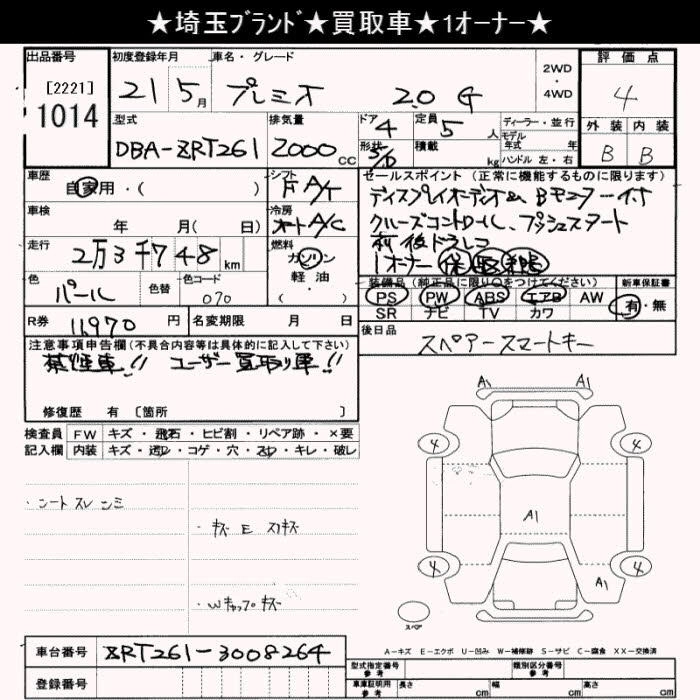 ★埼玉ﾌﾞﾗﾝﾄﾞ★買取車★1オーナー★
出品番号 初度登録年月 車名・グレード 2WD・4WD 評価点
[2221]
1014
21 5月 プレミオ 2.0 G 4
型式 排気量 ドア 定員 ディーラー・並行 外装 内装
DBA-ZRT261 2000cc 4 5人 モデル年式 年 B B
形状 5/D 積載 kg ハンドル 左・右
車歴 自家用・( ) シフト F A/T セールスポイント(正常に機能するものに限ります)
車検 年 月( 日) 冷房 オートA/C
ディスプレイオーディオ Bモニター付
クルーズコントロール、プッシュスタート
前後ドラレコ
1オーナー 保 取
走行 2万3千748km 燃料 ガソリン
軽油
・( )
色 パール 色替 色コード 070
装備品(純正品に限り○をつけてください) 新車保証書
PS PW ABS エアB AW 有・無
SR ナビ TV カワ
R券 11970円 名変期限 月 日
後日品 スペアースマートキー
注意事項申告欄(不具合内容等は具体的に記入して下さい)
禁煙車!! ユーザー買取り車!!
修復歴 有 〔箇所 〕
検査員 FW キズ・飛石・ヒビ割・リペア跡・×要
記入欄 内装 キズ・込・コゲ・穴・スレ・キレ・破し
・シートスレ シミ
・キズ E スリキズ
・Wキャップキズ
A1 A1
4 4
A1
4 4
A1
スペア
A-キズ E-エクボ U-凹み W-補修跡 S-サビ C-腐食 XX-交換済
車台番号 ZRT261-3008264
型式指定番号 参考 類別区分番号 参考
登録番号
車庫証明用 参考 長さ cm 幅 cm 高さ cm